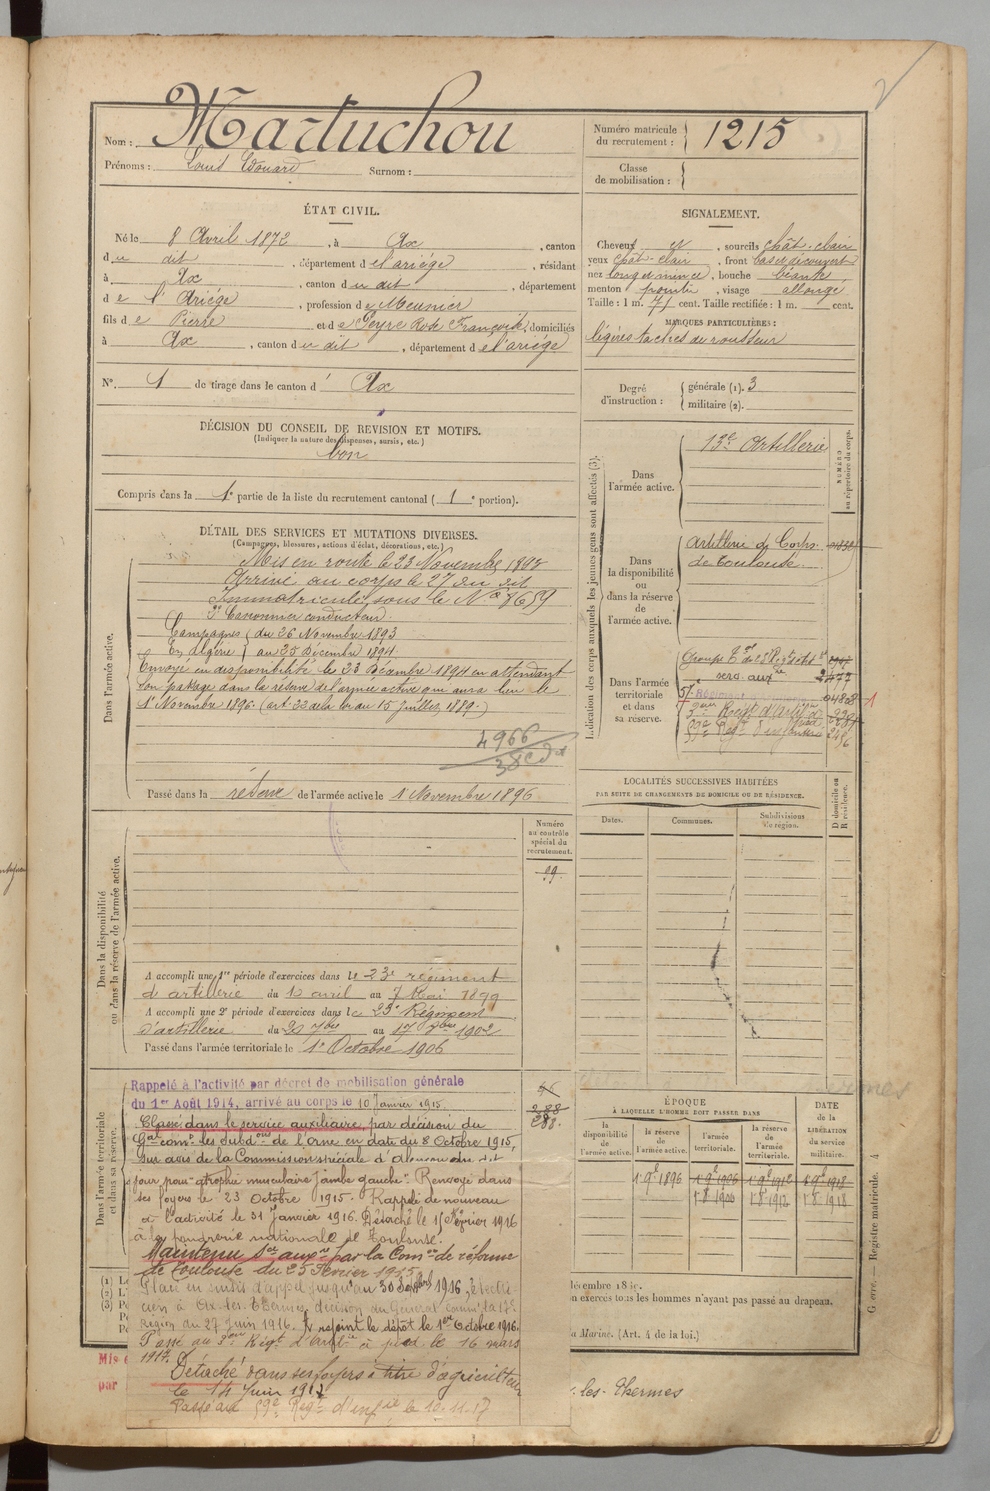 Nom : Martuchou
Prénoms : Louis Edouard Surnom :
Numéro matricule du recrutement : 1215
Classe de mobilisation :
ÉTAT CIVIL.
Né le 8 Avril 1872, à Ax, canton
du dit, département de l'ariége, résidant
à Ax, canton du dit, département
de l'Ariége, profession de Meunier
fils de Pierre et de Peyre Rose Françoise, domiciliés
à Ax, canton du dit, département de l'ariége
N° 1 de tirage dans le canton d' Ax
SIGNALEMENT.
Cheveux et, sourcils chât-clair
yeux chât-clair, front bas et découvert
nez long et mince, bouche béante,
menton pointu, visage allongé
Taille : 1 m. 71 cent. Taille rectifiée : 1 m. cent.
MARQUES PARTICULIÈRES :
légères taches de rousseur
Degré d'instruction : générale (1). 3
militaire (2).
DÉCISION DU CONSEIL DE REVISION ET MOTIFS.
(Indiquer la nature des dispenses, sursis, etc.)
bon
Compris dans la 1e partie de la liste du recrutement cantonal (1e portion).
DÉTAIL DES SERVICES ET MUTATIONS DIVERSES.
(Campagnes, blessures, actions d'éclat, décorations, etc.)
Dans l'armée active.
Mis en route le 23 Novembre 1893
Arrivé au corps le 27 du dit
Immatriculé sous le N° 7659
2e Canonnier conducteur.
Campagnes du 26 Novembre 1893
En Algérie au 25 Décembre 1894
Envoyé en disponibilité le 23 Décembre 1894 en attendant
son passage dans la réserve de l'armée active qui aura lieu le
1 Novembre 1896. (art: 22 de la loi du 15 Juillet 1889.)
4966
Passé dans la réserve de l'armée active le 1 Novembre 1896
Indication des corps auxquels les jeunes gens sont affectés (3).
NUMÉRO au répertoire du corps.
Dans l'armée active.
13e Artillerie
Dans la disponibilité ou dans la réserve de l'armée active.
Artillerie de Corps
de Toulouse.
Dans l'armée territoriale et dans sa réserve.
serv. auxre
3eme Regt d'artie à pied
59e Regt d'infanterie
LOCALITÉS SUCCESSIVES HABITÉES
PAR SUITE DE CHANGEMENTS DE DOMICILE OU DE RÉSIDENCE.
D domicile ou R résidence.
Dates. Communes. Subdivisions de région.
Numéro au contrôle spécial du recrutement.
99
Dans la disponibilité ou dans la réserve de l'armée active.
A accompli une 1re période d'exercices dans le 23e régiment
d'artillerie du 10 avril au 7 Mai 1899
A accompli une 2e période d'exercices dans le 23e Régiment
d'artillerie du 20 7bre au 17 8bre 1902
Passé dans l'armée territoriale le 1er Octobre 1906
Dans l'armée territoriale et dans sa réserve.
Rappelé à l'activité par décret de mobilisation générale
du 1er Août 1914, arrivé au corps le 10 Janvier 1915.
Classé dans le service auxiliaire, par décision du
Gal comt les subdons de l'Orne en date du 8 Octobre 1915,
sur avis de la Commission spéciale d'Alençon du dit
jour pour "atrophie musculaire jambe gauche". Renvoyé dans
ses foyers le 23 Octobre 1915. Rappelé de nouveau
à l'activité le 31 Janvier 1916. Détaché le 15 Février 1916
à la poudrerie nationale de Toulouse.
Maintenu Ser auxre par la Comon de réforme
de Toulouse du 25 Février 1915.
Placé en sursis d'appel jusqu'au 30 Septbre 1916,
à Ax-les-Thermes, décision du Général commt la 17e
Région du 27 Juin 1916. A rejoint le dépôt le 1er Octobre 1916.
Passé au 3eme Régt d'Artie à pied le 16 mars
1917.
Détaché dans ses foyers à titre d'agriculteur
le 14 Juin 1917
Passé au 59e Regt d'infie le 10.11.17
288.
ÉPOQUE
À LAQUELLE L'HOMME DOIT PASSER DANS
DATE de la LIBÉRATION du service militaire.
la disponibilité de l'armée active. la réserve de l'armée active. l'armée territoriale. la réserve de l'armée territoriale.
1 9bre 1896 1 9bre 1906 1 9bre 1912 1 9bre 1918
1 8 1906 1 8 1912 1 8 1918
décembre 18
n exercés tous les hommes n'ayant pas passé au drapeau.
a Marine. (Art. 4 de la loi.)
-les-Thermes
Registre matricule. 4
(1)
(2)
(3)
Mis
par